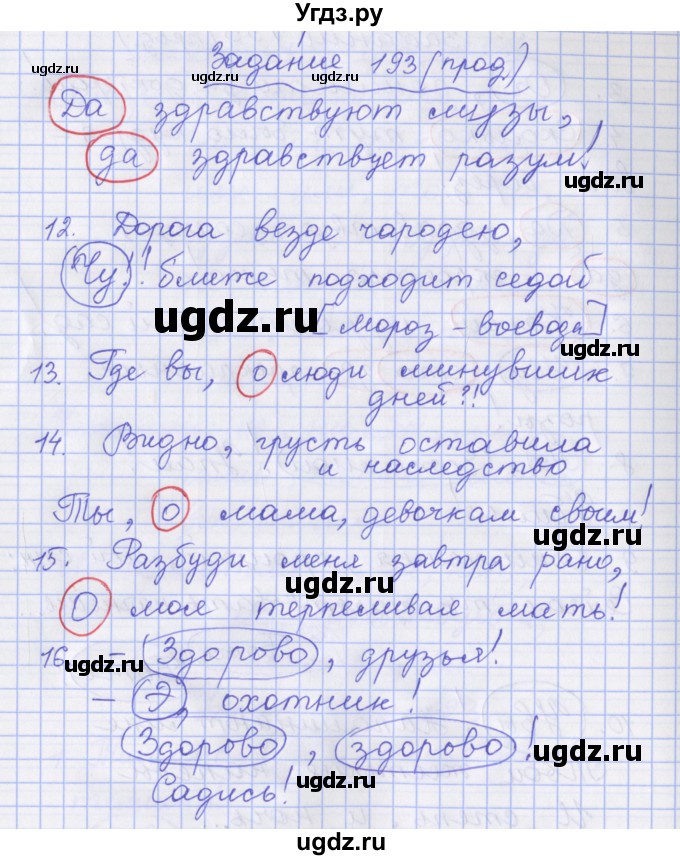 Угдз.ру
Задание 193 (прод)
ugdz.ru ugdz.ru ugdz.ru
Да здравствуют музы,
да здравствует разум!
ugdz.ru
12. Дорога везде чародею,
Чу! ! ближе подходит седой
ugdz.ru
[мороз - воевода]
ugdz.ru
13. Где вы, о люди минувших
дней?!
14. Видно, грусть оставила
и наследство
Ты, о мама, девочкам своим!
ugdz.ru
15. Разбуди меня завтра рано,
ugdz.ru
О моя терпеливая мать!
16. - Здорово, друзья!
- Э, охотник!
Здорово, здорово!
ugdz.ru
Садись!
ugdz.ru
ugdz.ru